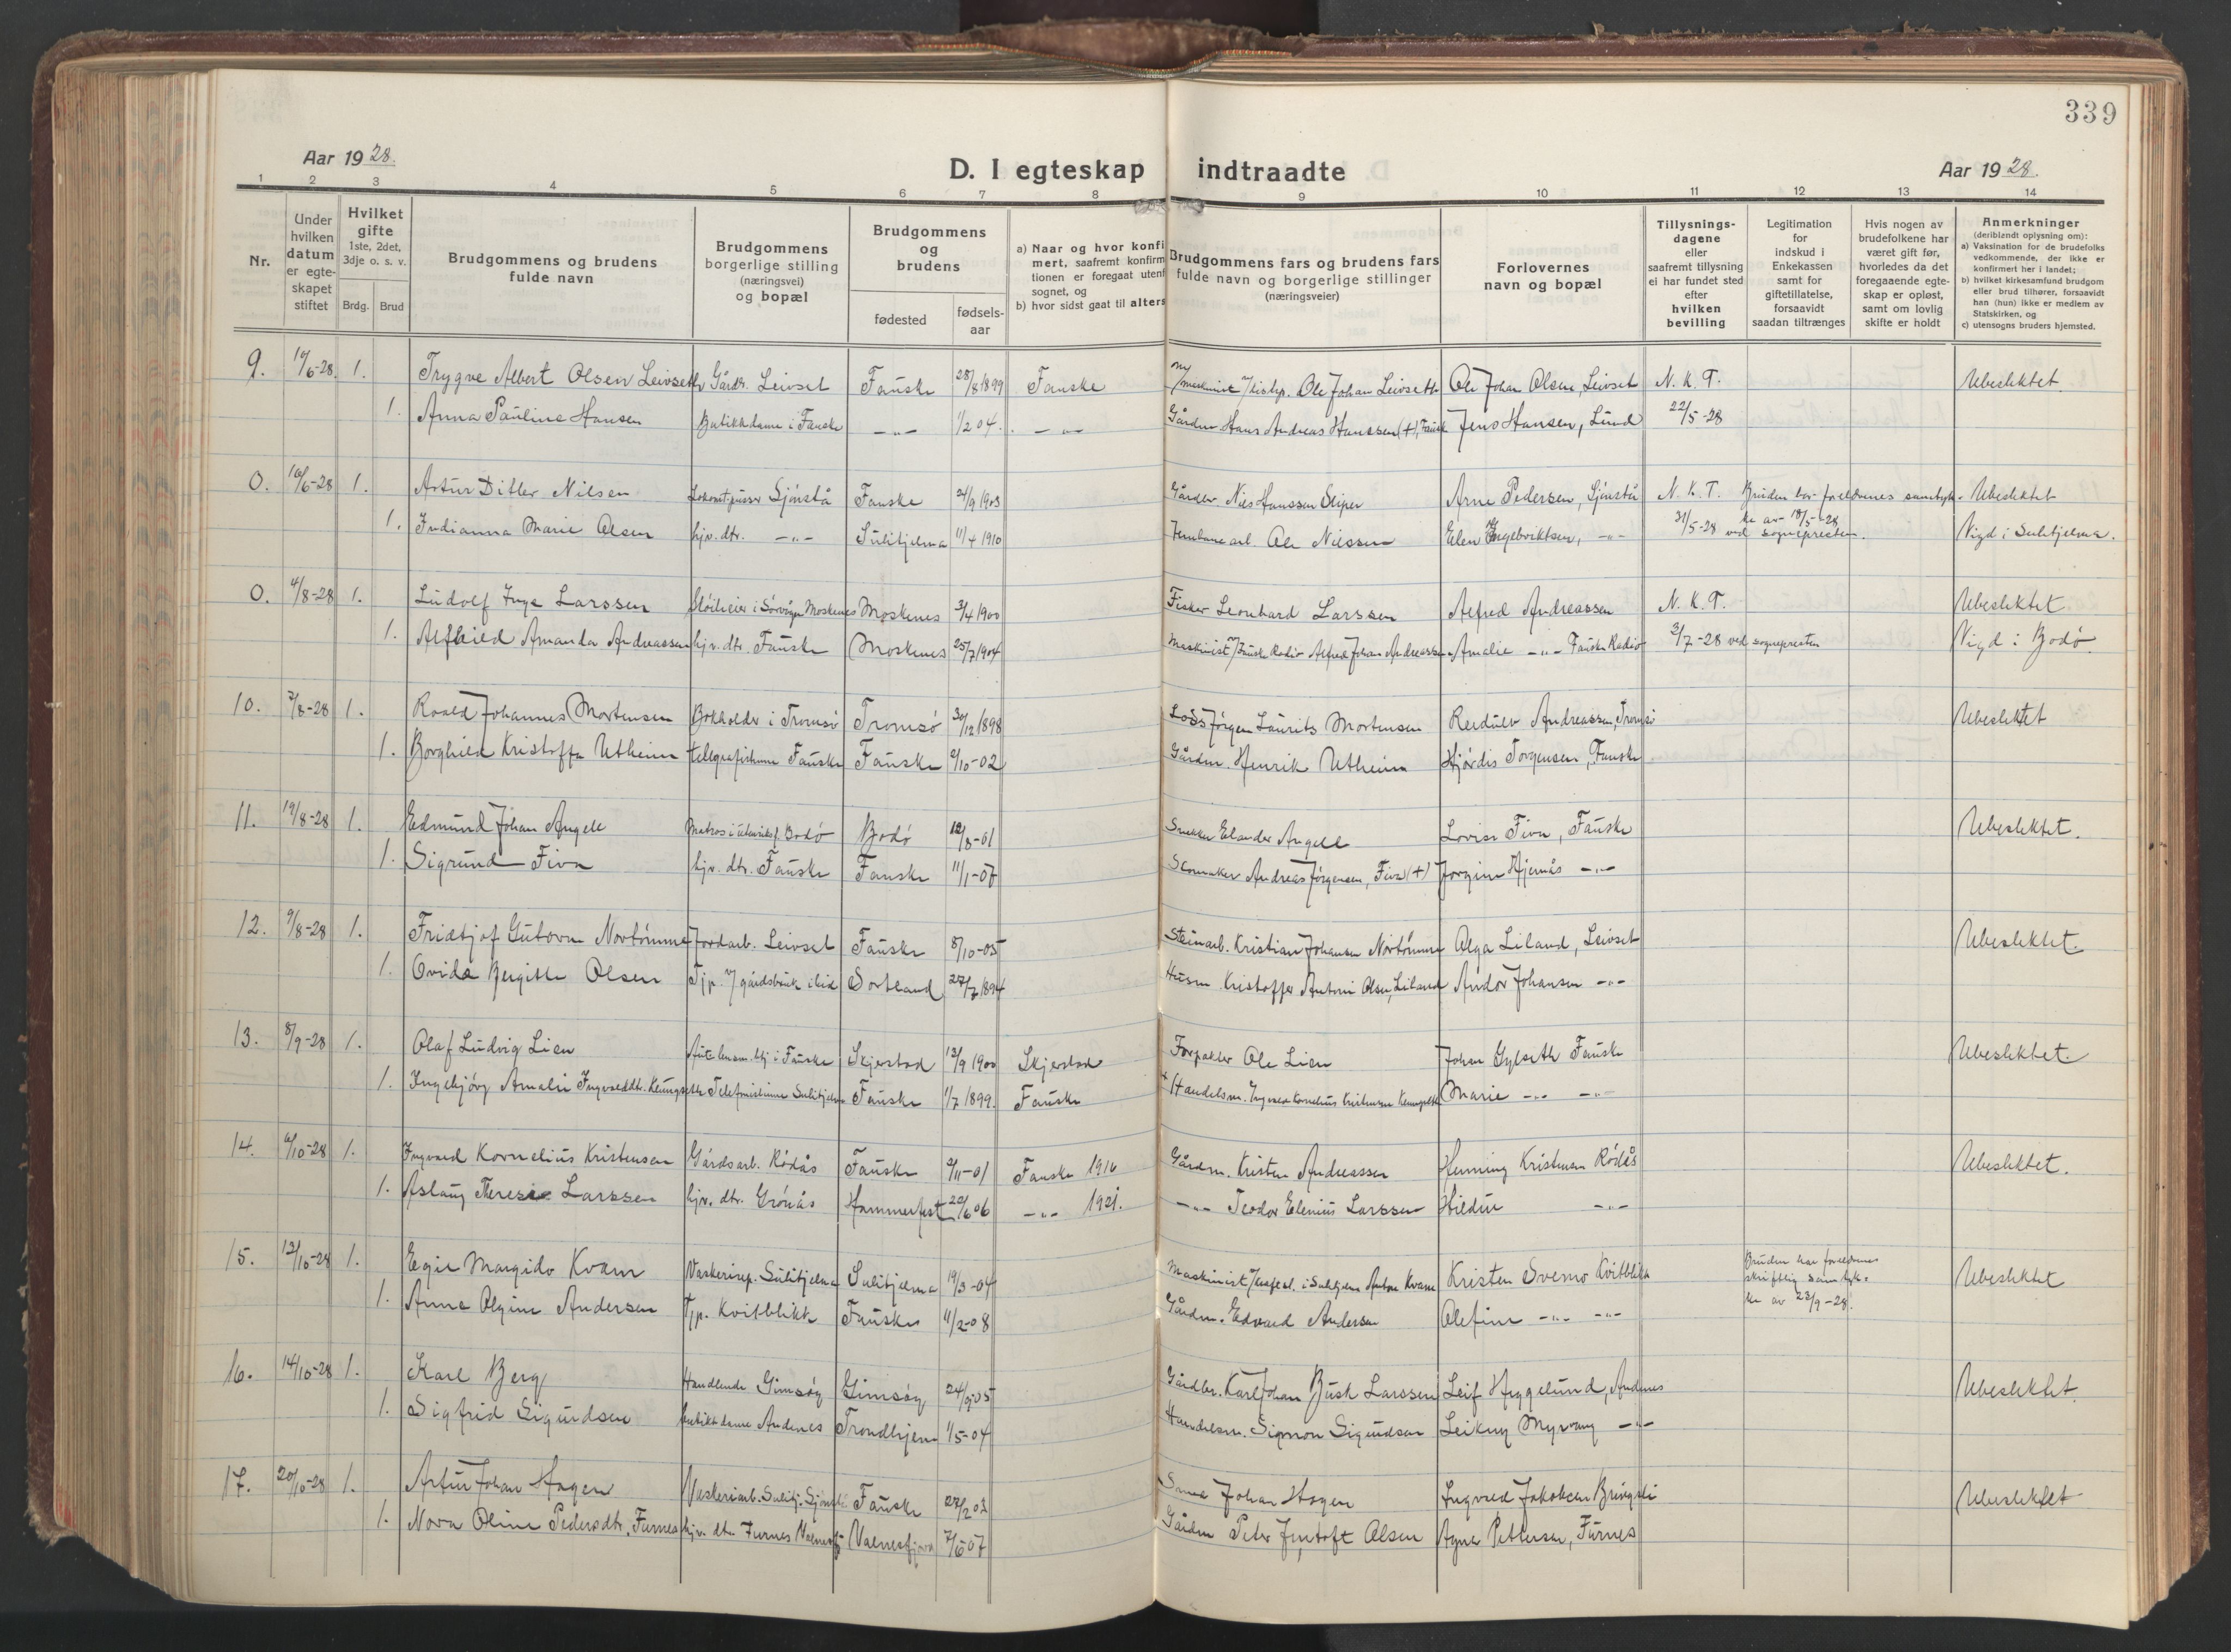 339
Aar 1928.
D. I egteskap indtraadte
Aar 1928.
1 2 3 4 5 6 7 8 9 10 11 12 13 14
Nr.
Under hvilken datum er egteskapet stiftet
Hvilket gifte 1ste, 2det, 3dje o. s. v.
Brdg. Brud
Brudgommens og brudens fulde navn
Brudgommens borgerlige stilling (næringsvei) og bopæl
Brudgommens og brudens
fødested
fødsels-aar
a) Naar og hvor konfi
mert, saafremt konfirm
tionen er foregaat utenf
sognet, og
b) hvor sidst gaat til alters
Brudgommens fars og brudens fars
fulde navn og borgerlige stillinger
(næringsveier)
Forlovernes navn og bopæl
Tillysnings-dagene eller saafremt tillysning ei har fundet sted efter hvilken bevilling
Legitimation for indskud i Enkekassen samt for giftetillatelse, forsaavidt saadan tiltrænges
Hvis nogen av brudefolkene har været gift før, hvorledes da det foregaaende egteskap er opløst, samt om lovlig skifte er holdt
Anmerkninger
(deriblandt oplysning om):
a) Vaksination for de brudefolks vedkommende, der ikke er konfirmert her i landet;
b) hvilket kirkesamfund brudgom eller brud tilhører, forsaavidt han (hun) ikke er medlem av Statskirken, og
c) utensogns bruders hjemsted.
9. 10/6-28. 1. Trygve Albert Olsen Leivseth Gårdb. Leivset Fauske 28/8 1899 Fauske Ole Johan Leivseth Ole Johan Olsen, Leivset N. K. T. Ubeslektet.
1. Anna Pauline Hansen Butikkdame i Fauske —"— 1/2 04. —"— Gårdm. Hans Andreas Hanssen (+), Fausk Jens Hansen, Lund 22/5-28
0. 16/6-28 1. Artur Ditler Nilsen Lokomotpusser Sjönstå Fauske 24/9 1903 Gårdbr. Nils Hanssen Sliper Arne Pedersen, Sjönstå N. K. T. Bruden har foreldrenes samtyk- Ubeslektet
1. Indianna Marie Olsen hjv. dtr. —"— Sulitjelma 11/4 1910 Jernbanearb. Ole Nilssen Elen Engebriktsen, —"— 31/5-28 ke av 18/5-28 ved sognepresten. Vigd i Sulitjelma.
0. 4/8-28 1. Ludolf Inge Larssen i Sörvågen Moskenes Moskenes 3/4 1900 Fisker Leonhard Larssen Alfred Andreassen N. K. T. Ubeslektet
1. Alfhild Amanda Andreassen hjv. dtr. Fauske Moskenes 25/7 1904 Maskinist v/Fauske Radio Alfred Johan Andreassen Amalie —"— Fauske Radio 3/7-28 ved sognepresten Vigd i Bodö.
10. 7/8-28 1. Roald Johannes Mortensen Bokholder i Tromsö Tromsö 30/12 1898 Lods Jörgen Laurits Mortensen Reidulv Andreassen, Tromsö Ubeslektet
1. Borghild Kristoffa Utheim telegrafistinne Fauske Fauske 9/10-02 Gårdm. Henrik Utheim Hjördis Torgensen, Fauske
11. 19/8-28 1. Edmund Johan Angell Bodö Bodö 12/8-01 Snekker Elander Angell Lovise Fiva, Fauske Ubeslektet.
1. Sigrund Fiva hjv. dtr. Fauske Fauske 11/1-07 Skomaker Andreas Jörgensen, Fiva (+) Jorgine Hjernås —"—
12. 9/8-28 1. Fridtjof Gustavn Nortömme Jordarb. Leivset Fauske 8/10-05 Steinarb. Kristian Johansen Nortömme Olga Liland, Leivset Ubeslektet.
1. Ovida Bergitte Olsen Tjp. v/ gårdsbruk ibid Sortland 27/7 1894 Husm. Kristoffer Antoni Olsen, Liland Andor Johansen —"—
13. 8/9-28 1. Olaf Ludvig Lien i Fauske Skjerstad 12/9 1900 Skjerstad Forpakter Ole Lien Johan Gylseth Fauske Ubeslektet.
1. Ingebjörg Amalie Ingvaldsdtr. Klungseth Telefonistinne Sulitjelma Fauske 1/7 1899. Fauske Handelsm. Ingvald Kornelius Kristensen Klungseth Marie —"— —"—
14. 6/10-28 1. Ingvald Kornelius Kristensen Gårdsarb. Rödås Fauske 9/11-01 Fauske 1916 Gårdm. Kristen Andreassen Henning Kristensen Rödås Ubeslektet.
1. Aslaug Therese Larssen hjv. dtr. Grönås Hammerfest 20/6 06 —"— 1921. —"— Teodor Elenius Larssen Hildur —"—
15. 12/10-28 1. Egil Margido Kvam Vaskerirep. Sulitjelma Sulitjelma 19/3-04 Maskinist i Sulitjelma Anton Kvam Kristen Svemo Kvitblikk Bruden har foreldrenes skriftlig samtyk- Ubeslektet
1. Anna Olgine Andersen Tjp. Kvitblikk Fauske 11/2-08 Gårdm. Edvard Andersen Olefine —"— —"— ke av 23/9-28.
16. 14/10-28 1. Karl Berg Handlende Gimsöy Gimsöy 24/9 05 Gårdbr. Karl Johan Bush Larssen Leif Heggelund, Andenes Ubeslektet.
1. Sigfrid Sigurdsen butikkdame Andenes Trondhjem 1/5-04 Handelsm. Sigmon Sigurdsen Leikny Myrvang —"—
17. 20/10-28 1. Artur Johan Hagen Vaskeriarb. Sulitj. Sjönstå Fauske 27/2 03 Johan Hagen Ingvald Jakobsen Bringsli Ubeslektet
1. Nora Oline Pedersdtr. Furnes hjv. dtr. Furnes Valnesfj Valnesfjord 7/6 07 Gårdm Peder Jentoft Olsen Agnes Pettersen, Furnes